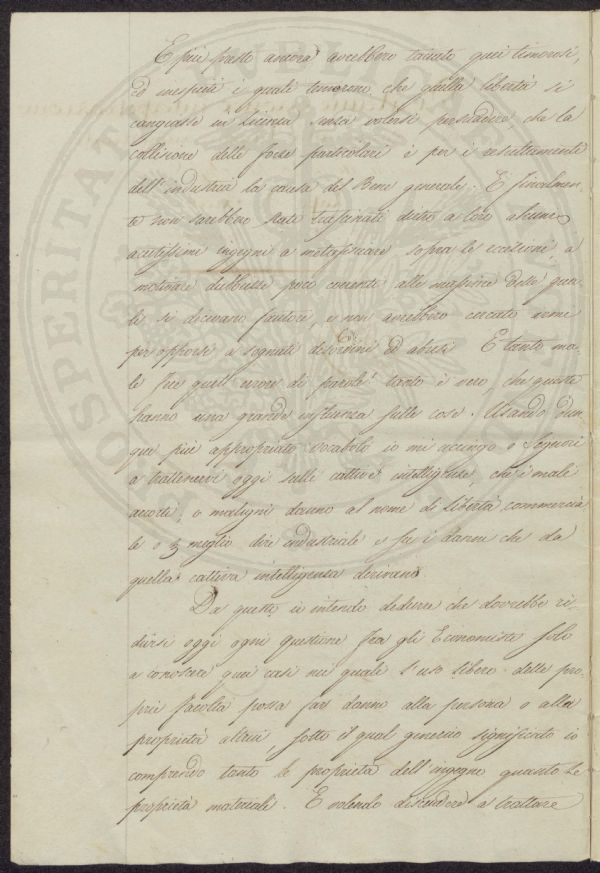 E più presto ancora avrebbero taciuto quei timorosi,
ed inesperti i quali temerono, che dalla libertà si
cangiasse in licenza senza volersi persuadere, che la
collisione delle forze particolari è per i resultamenti
dell'industria la causa del Bene generale. E finalmen-
te non sarebbero stati trascinati dietro a loro alcuni
acutissimi ingegni a metafisicare sopra le eccezioni, a
motivare dubbiezze poco coerenti alle massime delle qua-
li si dicevano fautori, e non avrebbero cercato armi
per opporsi a sognati disordini ed abusi. E tanto ma-
le fece quell'errore di parole! tanto è vero, che queste
hanno una grande influenza sulle cose. Usando dun-
que più appropriato vocabolo io mi accingo o Signori
a trattenervi oggi sulle cattive intelligenze, che i male
accorti, o maligni danno al nome di libertà commercia-
le o meglio dire industriale e su i danni che da
quella cattiva intelligenza derivano.
Da questo io intendo dedurre che dovrebbe ri-
dursi oggi ogni questione fra gli Economisti solo
a conoscere quei casi nei quali l'uso libero delle pro-
prie facoltà possa far danno alla persona o alla
proprietà altrui, sotto il qual generico significato io
comprendo tanto le proprietà dell'ingegno quanto le
proprietà materiali. E volendo discendere a trattare